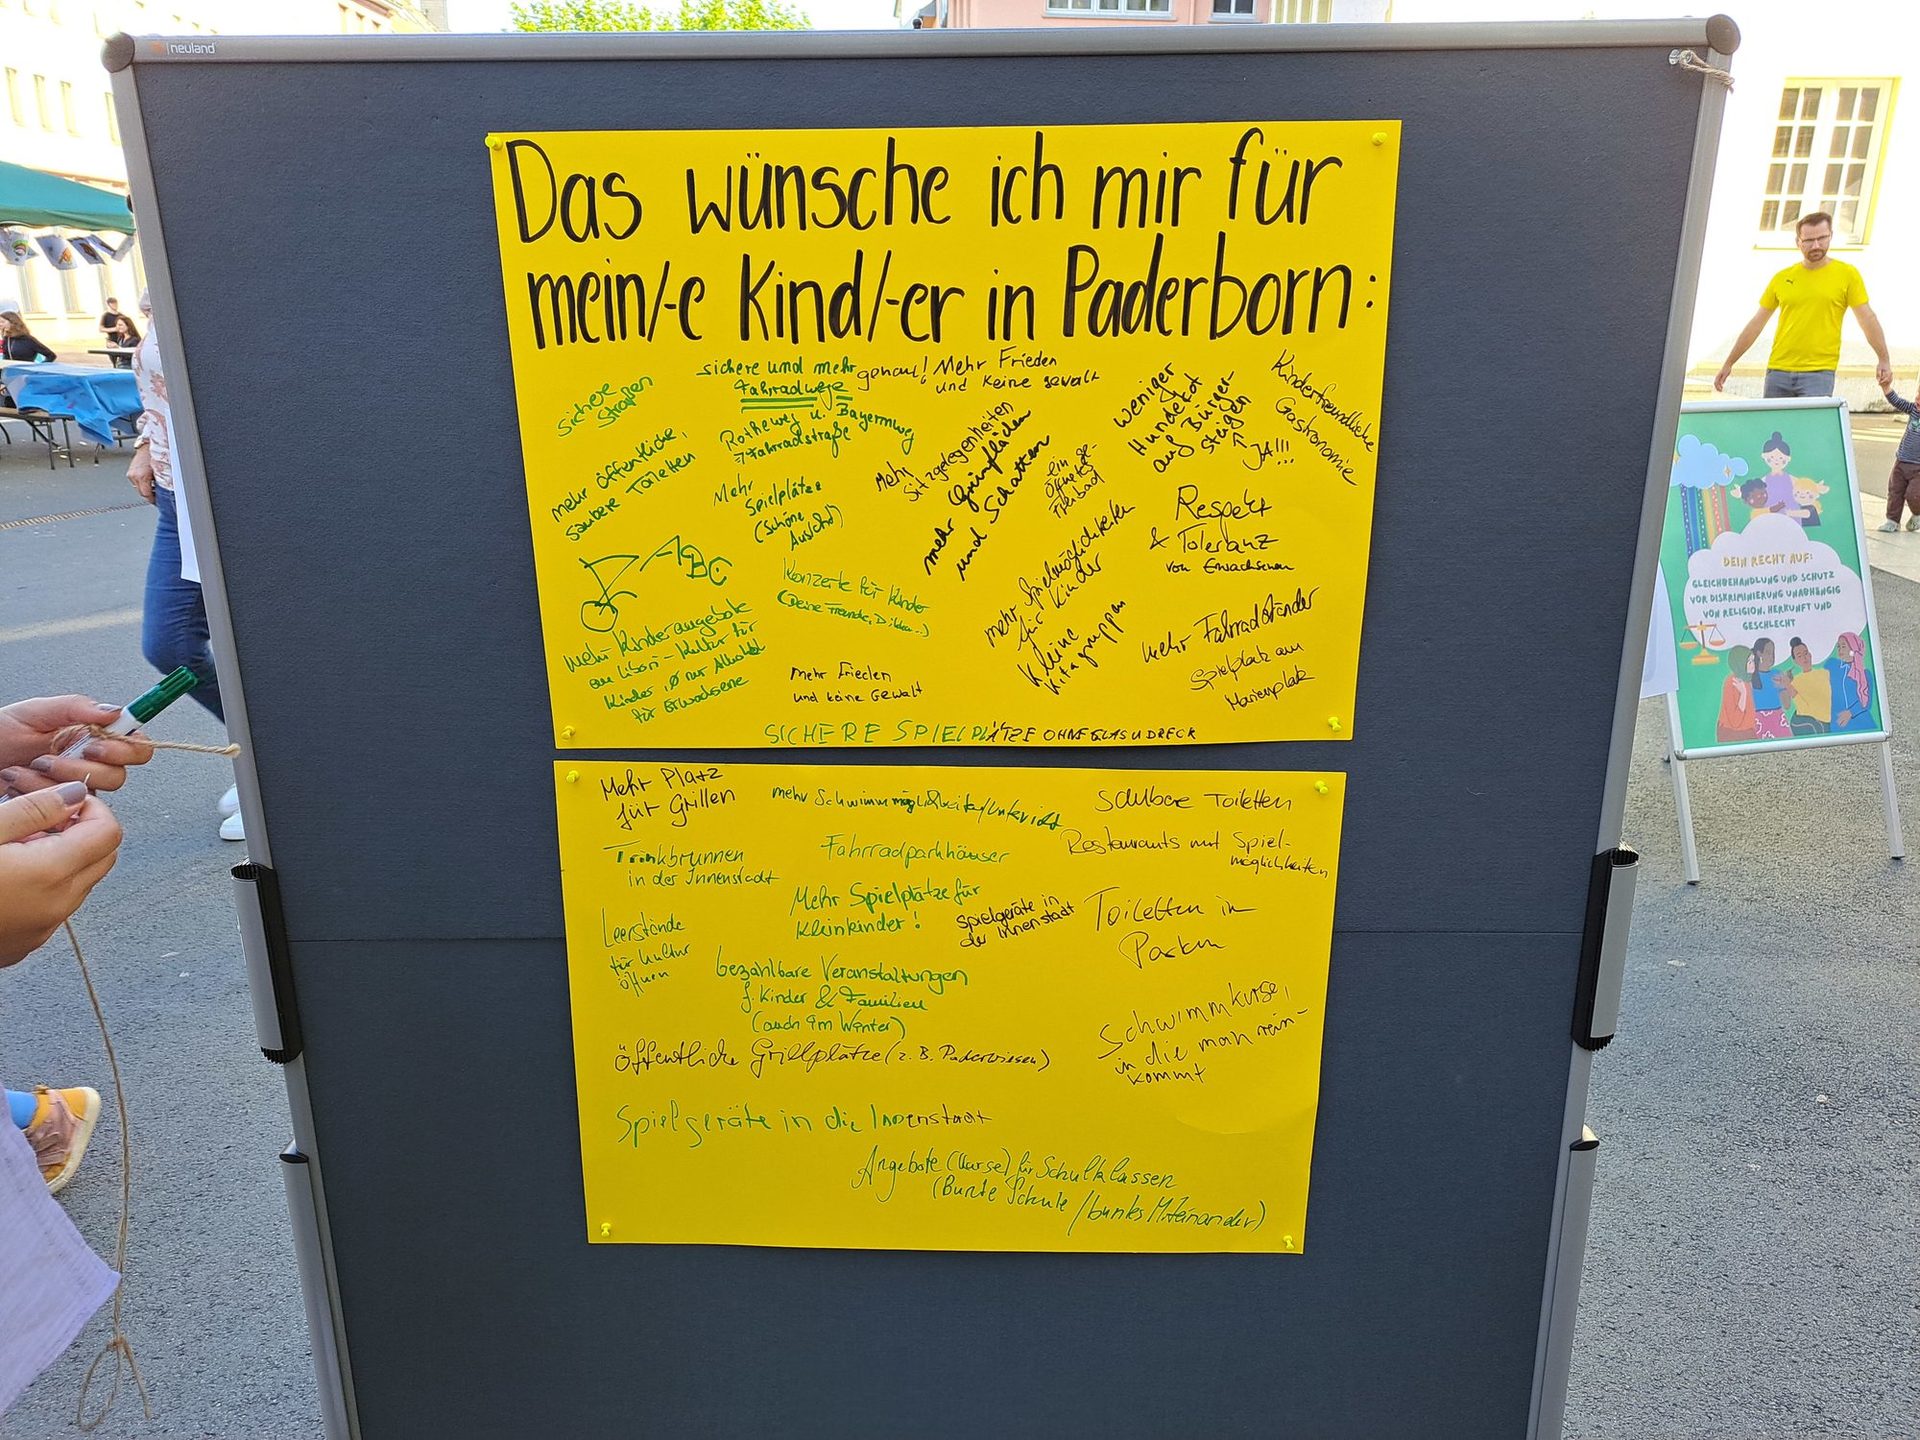 neuland
Das wünsche ich mir für
mein/-e Kind/-er in Paderborn:
sichere
Straßen
sichere und mehr
Fahrradwege
genau!
Mehr Frieden
und keine Gewalt
weniger
Hundekot
auf Bürger-
steigen
JA!!!
Kinderfreundliche
Gastronomie
Rotheweg u. Bayernweg
Fahrradstraße
mehr öffentliche,
saubere Toiletten
Mehr
Spielplätze
(schöne
Mehr
Sitzgelegenheiten
mehr Grünflächen
und Schatten
ein
Freibad
Respekt
& Toleranz
von Erwachsenen
ABC
Konzerte für Kinder
(Deine Freunde, Dikka..)
mehr Spielmöglichkeiten
für Kinder
Kleine
Kitagruppen
mehr Fahrradständer
Spielplatz am
Marienplatz
mehr Kinderangebote
an Libori - Kultur für
Kinder, Ø nur Alkohol
für Erwachsene
mehr Frieden
und keine Gewalt
SICHERE SPIELPLÄTZE OHNE GLAS U DRECK
Mehr Platz
für Grillen
mehr Schwimmmöglichkeiten/unterricht
Saubere Toiletten
Trinkbrunnen
in der Innenstadt
Fahrradparkhäuser
Restaurants mit Spiel-
möglichkeiten
Mehr Spielplätze für
Kleinkinder!
Spielgeräte in
der Innenstadt
Toiletten in
Parken
Leerstände
für Kultur
öffnen
bezahlbare Veranstaltungen
f. Kinder & Familien
(auch im Winter)
Schwimmkurse,
in die man rein-
kommt
öffentliche Grillplätze (z. B. Paderwiesen)
Spielgeräte in die Innenstadt
Angebote (Kurse) für Schulklassen
(Bunte Schule / buntes Miteinander)
DEIN RECHT AUF:
GLEICHBEHANDLUNG UND SCHUTZ
VOR DISKRIMINIERUNG UNABHÄNGIG
VON RELIGION, HERKUNFT UND
GESCHLECHT